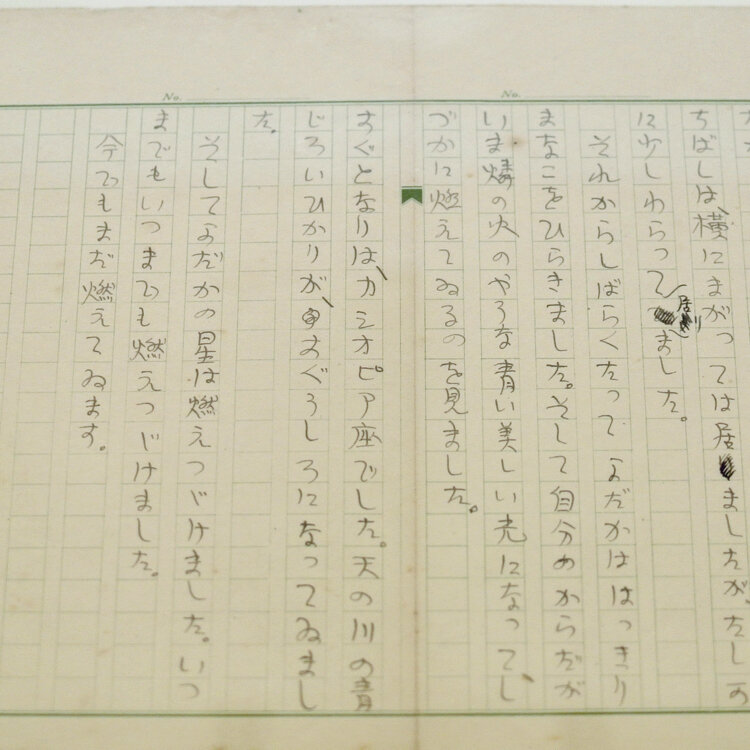 No.
No.
ちばしは、横にまがっては居ましたが、たしか
に少しわらって居りました。
それからしばらくたってよだかははっきり
まなこをひらきました。そして自分のからだが
いま燐の火のやうな青い美しい光になって、し
づかに燃えてゐるのを見ました。
すぐとなりは、カシオピア座でした。天の川の青
じろいひかりが、すぐうしろになってゐまし
た。
そしてよだかの星は燃えつゞけました。いつ
までもいつまでも燃えつゞけました。
今でもまだ燃えてゐます。